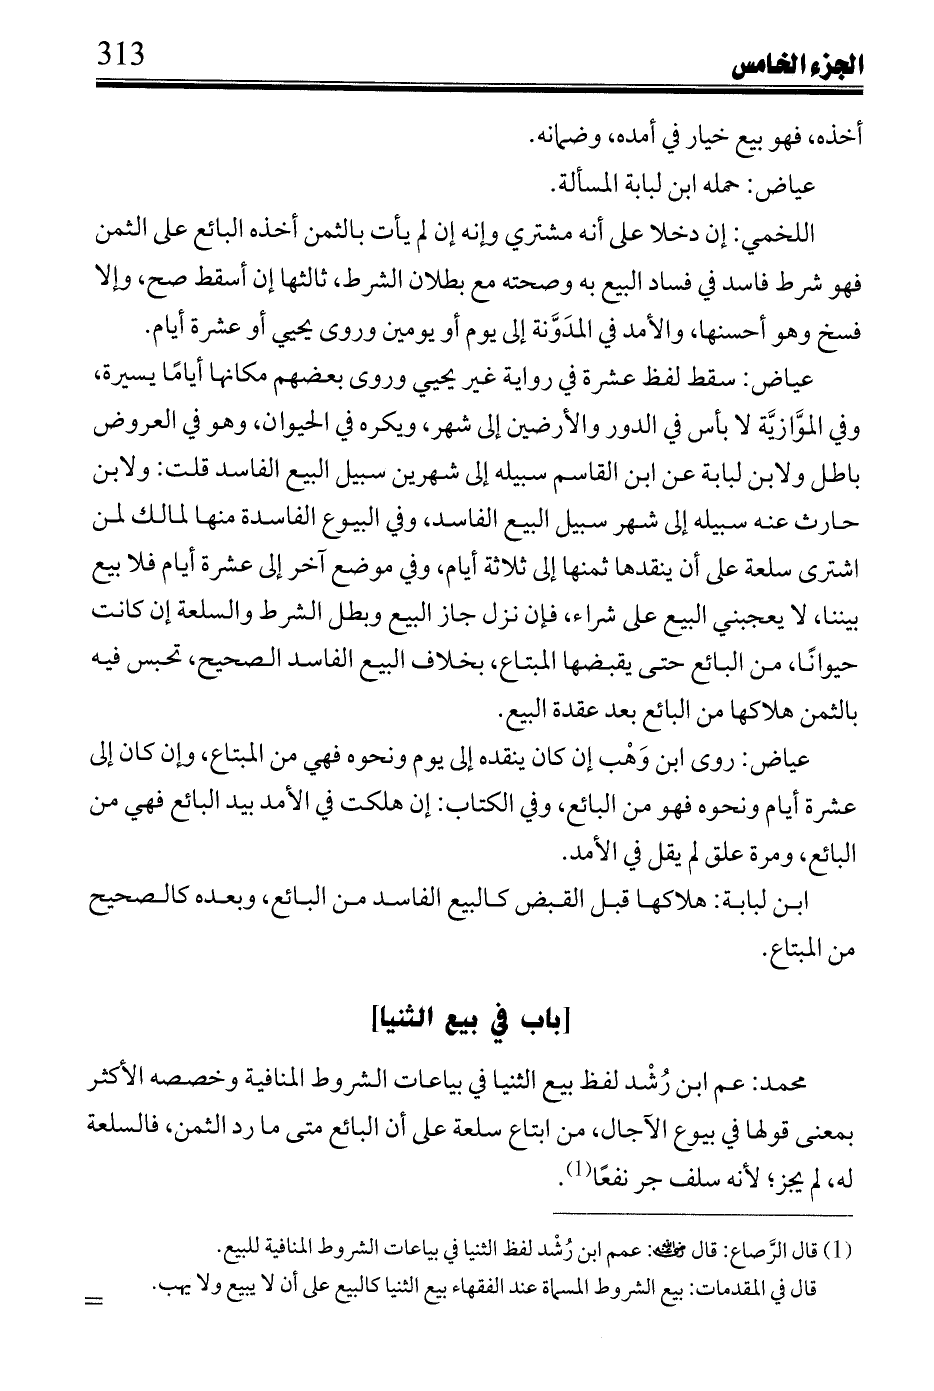 الجزء الخامس
313
أخذه، فهو بيع خيار في أمده، وضمانه.
عياض: حمله ابن لبابة المسألة.
اللخمي: إن دخلا على أنه مشتري وإنه إن لم يأت بالثمن أخذه البائع على الثمن
فهو شرط فاسد في فساد البيع به وصحته مع بطلان الشرط، ثالثها إن أسقط صح، وإلا
فسخ وهو أحسنها، والأمد في المدَوَّنة إلى يوم أو يومين وروى يحيى أو عشرة أيام.
عياض: سقط لفظ عشرة في رواية غير يحيى وروى بعضهم مكانها أيامًا يسيرة،
وفي الموَّازيَّة لا بأس في الدور والأرضين إلى شهر، ويكره في الحيوان، وهو في العروض
باطل ولابن لبابة عن ابن القاسم سبيله إلى شهرين سبيل البيع الفاسد قلت: ولابن
حارث عنه سبيله إلى شهر سبيل البيع الفاسد، وفي البيوع الفاسدة منها لمالك لمن
اشترى سلعة على أن ينقدها ثمنها إلى ثلاثة أيام، وفي موضع آخر إلى عشرة أيام فلا بيع
بيننا، لا يعجبني البيع على شراء، فإن نزل جاز البيع وبطل الشرط والسلعة إن كانت
حيوانًا، من البائع حتى يقبضها المبتاع، بخلاف البيع الفاسد الصحيح، تحبس فيه
بالثمن هلاكها من البائع بعد عقدة البيع.
عياض: روى ابن وَهْب إن كان ينقده إلى يوم ونحوه فهي من المبتاع، وإن كان إلى
عشرة أيام ونحوه فهو من البائع، وفي الكتاب: إن هلكت في الأمد بيد البائع فهي من
البائع، ومرة علق لم يقل في الأمد.
ابن لبابة: هلاكها قبل القبض كالبيع الفاسد من البائع، وبعده كالصحيح
من المبتاع.
[باب في بيع الثنيا]
محمد: عم ابن رُشْد لفظ بيع الثنيا في بياعات الشروط المنافية وخصصه الأكثر
بمعنى قولها في بيوع الآجال، من ابتاع سلعة على أن البائع متى ما رد الثمن، فالسلعة
له، لم يجز؛ لأنه سلف جر نفعًا(1).
(1) قال الرَّصاع: قال رضي الله عنه: عمم ابن رُشْد لفظ الثنيا في بياعات الشروط المنافية للبيع.
قال في المقدمات: بيع الشروط المسماة عند الفقهاء بيع الثنيا كالبيع على أن لا يبيع ولا يهب.
=